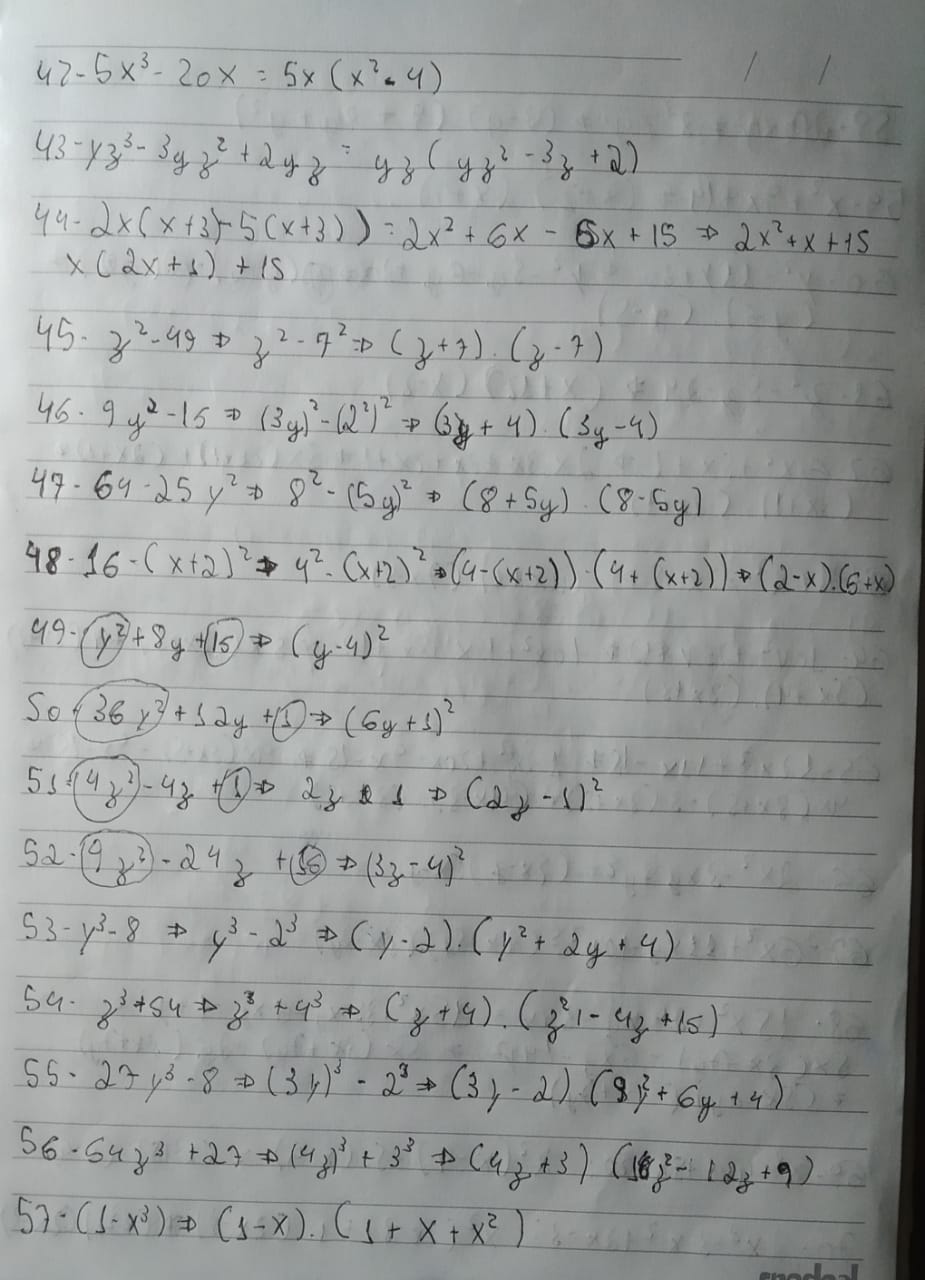 / /
42- 5x³ - 20x = 5x (x² - 4)
43- yz³ - 3yz² + 2yz = yz (yz² - 3z + 2)
44- 2x(x+3) - 5(x+3)) = 2x² + 6x - 5x + 15 ⇒ 2x² + x + 15
x(2x+1) + 15
45- z² - 49 ⇒ z² - 7² ⇒ (z+7) . (z-7)
46- 9y² - 16 ⇒ (3y)² - (2²)² ⇒ (3y + 4) . (3y - 4)
47- 64 - 25y² ⇒ 8² - (5y)² ⇒ (8 + 5y) . (8 - 5y)
48- 16 - (x+2)² ⇒ 4² - (x+2)² ⇒ (4-(x+2)) . (4 + (x+2)) ⇒ (2-x).(6+x)
49- y² + 8y + 16 ⇒ (y-4)²
50- 36y² + 12y + 1 ⇒ (6y+1)²
51- 4z² - 4z + 1 ⇒ 2z 1 ⇒ (2z - 1)²
52- 9z² - 24z + 16 ⇒ (3z - 4)²
53- y³ - 8 ⇒ y³ - 2³ ⇒ (y-2) . (y² + 2y + 4)
54- z³ + 64 ⇒ z³ + 4³ ⇒ (z+4) . (z² - 4z + 16)
55- 27y³ - 8 ⇒ (3y)³ - 2³ ⇒ (3y - 2) . (9y² + 6y + 4)
56- 64z³ + 27 ⇒ (4z)³ + 3³ ⇒ (4z + 3) (16z² - 12z + 9)
57- (1-x³) ⇒ (1-x) . (1 + x + x²)